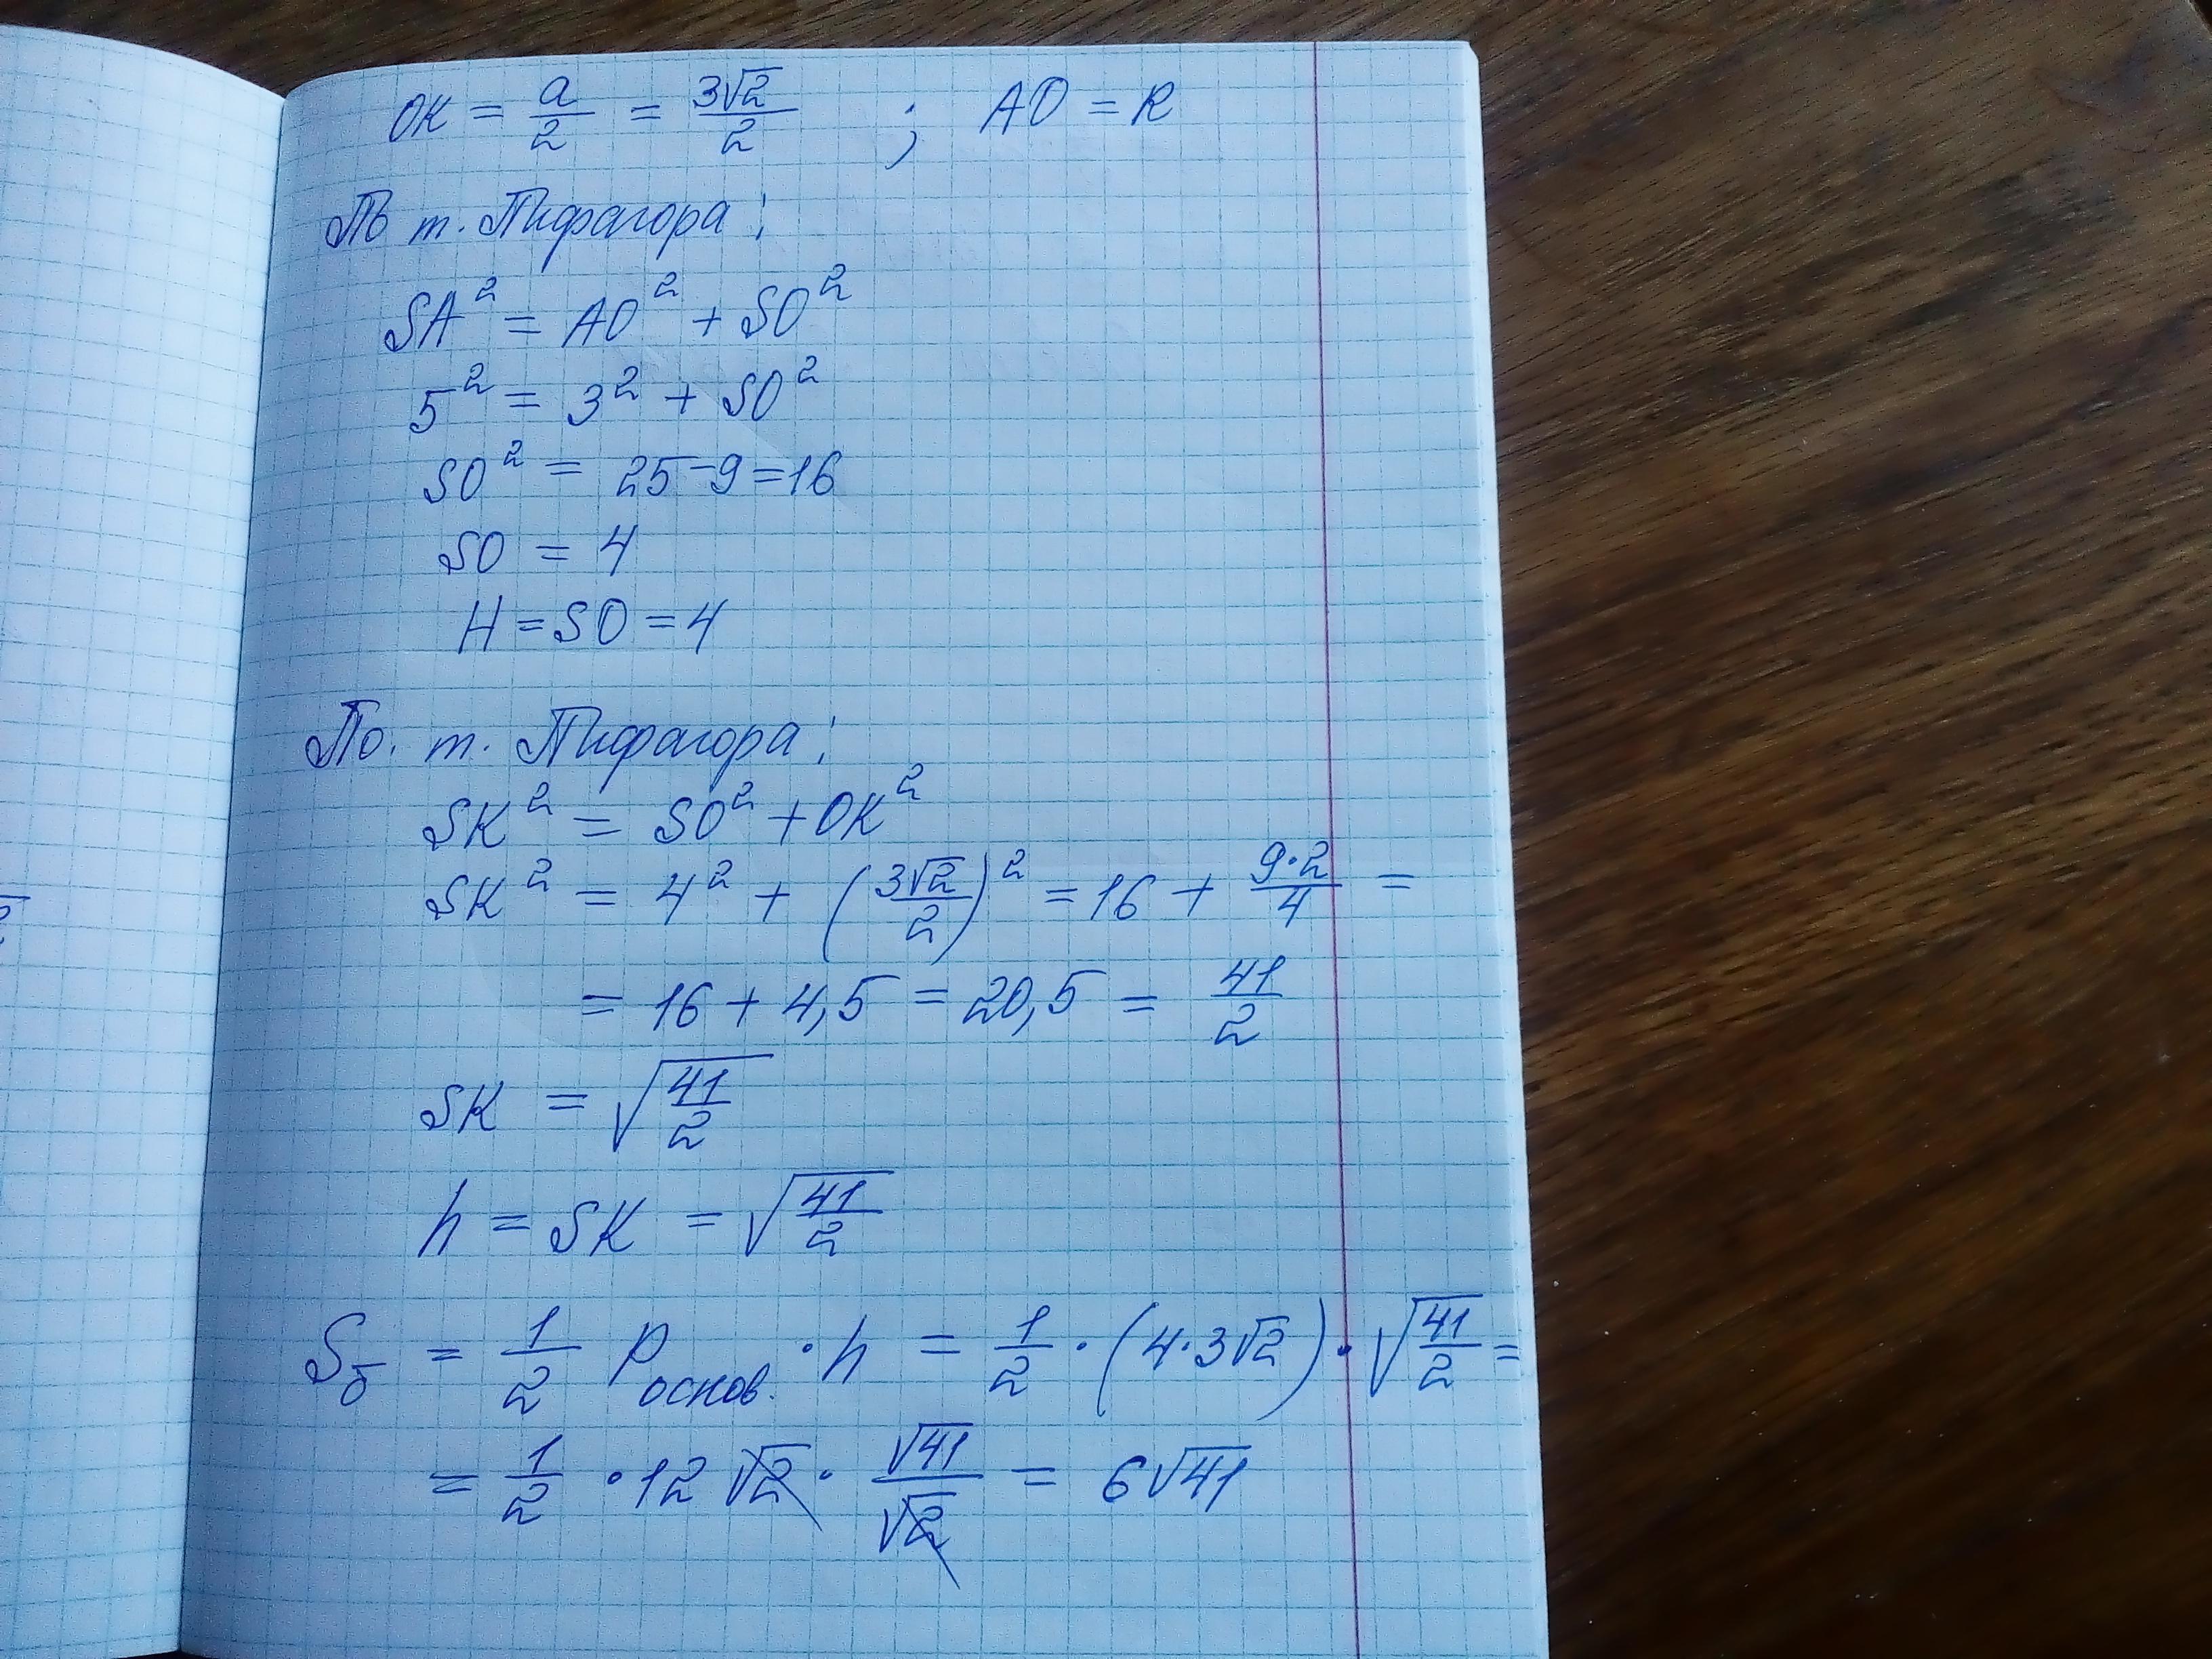 OK = a/2 = 3√2/2 ; AO = R
По т. Пифагора:
SA² = AO² + SO²
5² = 3² + SO²
SO² = 25-9=16
SO = 4
H = SO = 4
По. т. Пифагора:
SK² = SO² + OK²
SK² = 4² + (3√2/2)² = 16 + 9·2/4 =
= 16 + 4,5 = 20,5 = 41/2
SK = √(41/2)
h = SK = √(41/2)
Sб = 1/2 Pоснов. · h = 1/2 · (4·3√2) · √(41/2) =
= 1/2 · 12√2 · √41/√2 = 6√41